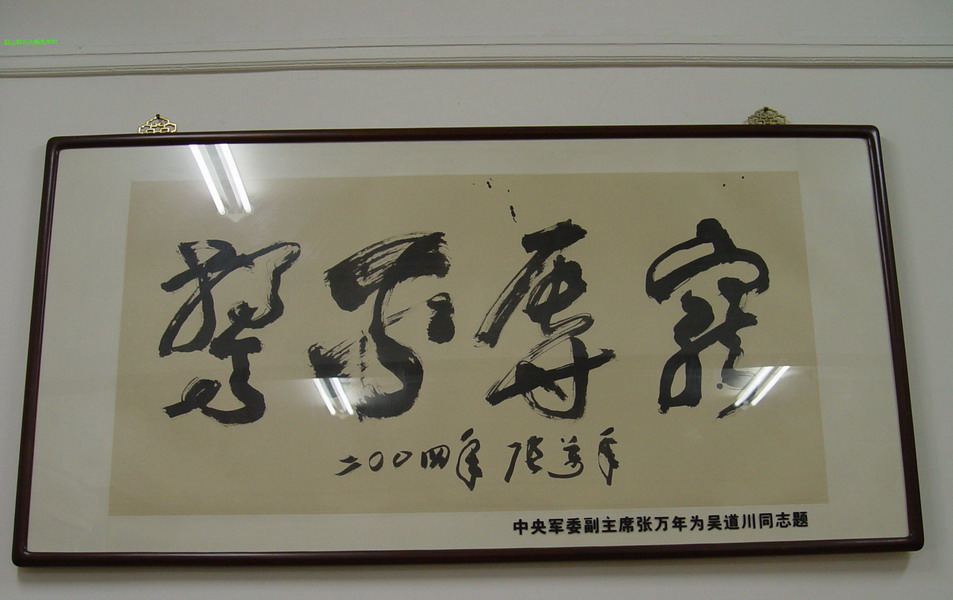 寵辱不驚
二〇〇四年 张萬年
中央军委副主席张万年为吴道川同志题